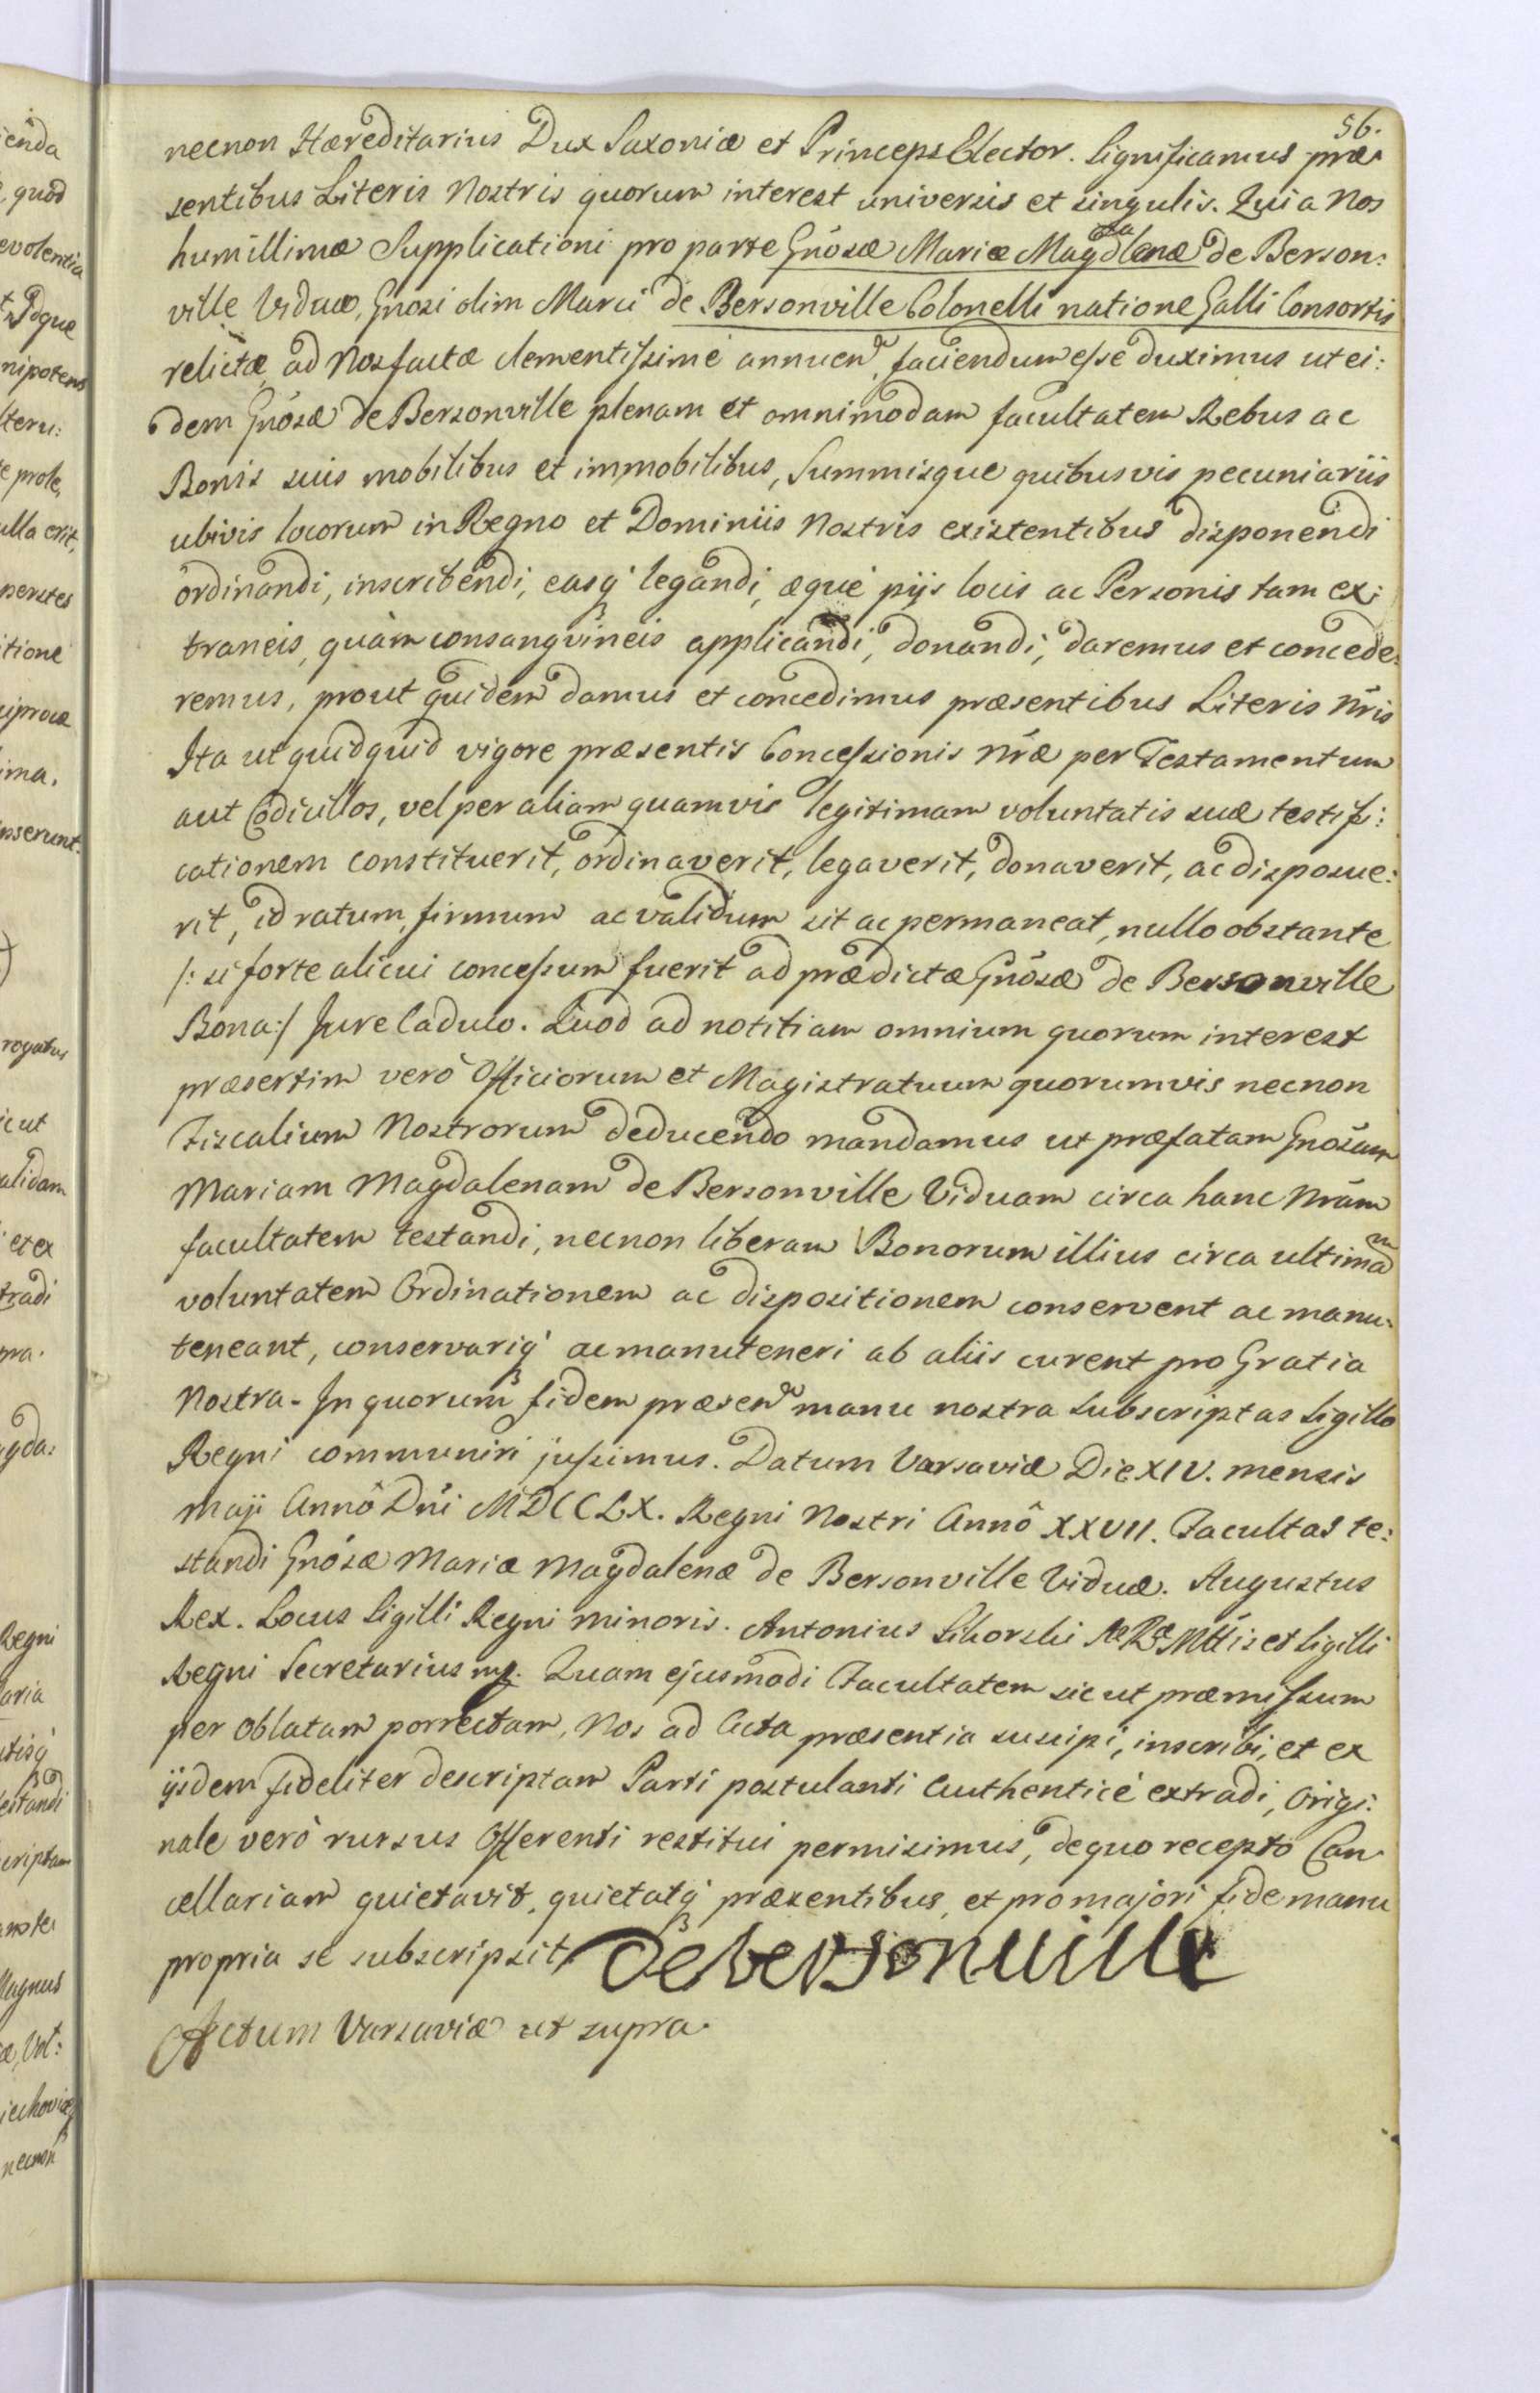 56.
necnon Hæreditarius Dux Saxoniæ et Princeps Elector. Significamus præ:
sentibus Literis Nostris quorum interest universis et singulis. Quia Nos
humillimæ Supplicationi pro parte Gnósæ Mariæ Magdalenæ de Berson:
ville Viduæ, Gnosi olim Marci de Bersonville Colonelli natione Galli Consortis
relictæ, ad Nos factæ clementissimè annuen, faciendum esse duximus ut ei:
dem Gnósæ de Bersonville plenam et omnimodam facultatem Rebus ac
Bonis suis mobilibus et immobilibus, Summisque quibusvis pecuniariis
ubivis locorum in Regno et Dominiis Nostris existentibus disponendi
ordinandi, inscribendi, easq́ legandi, æquè pijs locis ac Personis tam ex:
traneis, quàm consangvineis applicandi, donandi, daremus et concede:
remus, prout quidem damus et concedimus præsentibus Literis Nr̃is
Ita ut quidquid vigore præsentis Concessionis Nr̃æ per Testamentum
aut Codicillos, vel per aliam quamvis legitimam voluntatis suæ testifi:
cationem constituerit, ordinaverit, legaverit, donaverit, ac disposue:
rit, id ratum, firmum ac validum sit ac permaneat, nullo obstante
/: si forte alicui concessum fuerit ad prædictæ Gnósæ de Bersonville
Bona :/ Jure Caduco. Quod ad notitiam omnium quorum interest
præsertim verò Officiorum et Magistratuum quorumvis necnon
Fiscalium Nostrorum deducendo mandamus ut præfatam Gnosam
Mariam Magdalenam de Bersonville Viduam circa hanc Nr̃am
facultatem testandi, necnon liberam Bonorum illius circa ultimam
voluntatem Ordinationem ac dispositionem conservent ac manu:
teneant, conservariq́ ac manuteneri ab aliis curent pro Gratia
Nostra. In quorum fidem præsen manu nostra subscriptas Sigillo
Regni communiri jussimus. Datum Varsaviæ Die XIV. mensis
Maji Annô Dni MDCCLX. Regni Nostri Annô XXVII. Facultas te:
standi Gnósæ Mariæ Magdalenæ de Bersonville Viduæ. Augustus
Rex. Locus Sigilli Regni minoris. Antonius Sikorski Mttis et Sigilli
Regni Secretarius mp. Quam ejusmodi Facultatem sicut præmissum
per Oblatam porrectam, Nos ad Acta præsentia suscipi, inscribi, et ex
ijsdem fideliter descriptam Parti postulanti Authenticè extradi, Origi:
nale verò rursus Offerenti restitui permisimus, de quo recepto Can
cellariam quietavit, quietatq́ præsentibus, et pro majori fide manu
propria se subscripsit. de bersonuille
Actum Varsaviæ ut supra.
enda
quod
evolentia
Idque
nipotens
lteru:
e prole,
ulla erit,
perstes
itione
iprocæ
ima.
nserunt.
rogatus
icut
alidam
et ex
tradi
gda:
Regni
aria
estandi
criptam
Magnus
æ, Vol:
iechoviæ
necnon